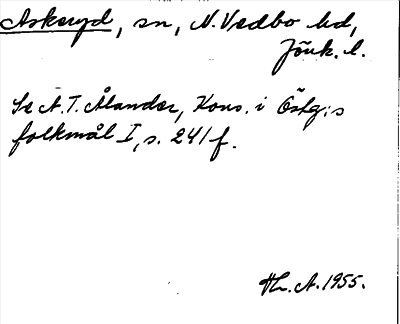 Askeryd, sn, N. Vedbo hd,
Jönk. l.
Se A. T. Ålander, Kons. i Östg:s
folkmål I, s. 241 f.
A. 1955.